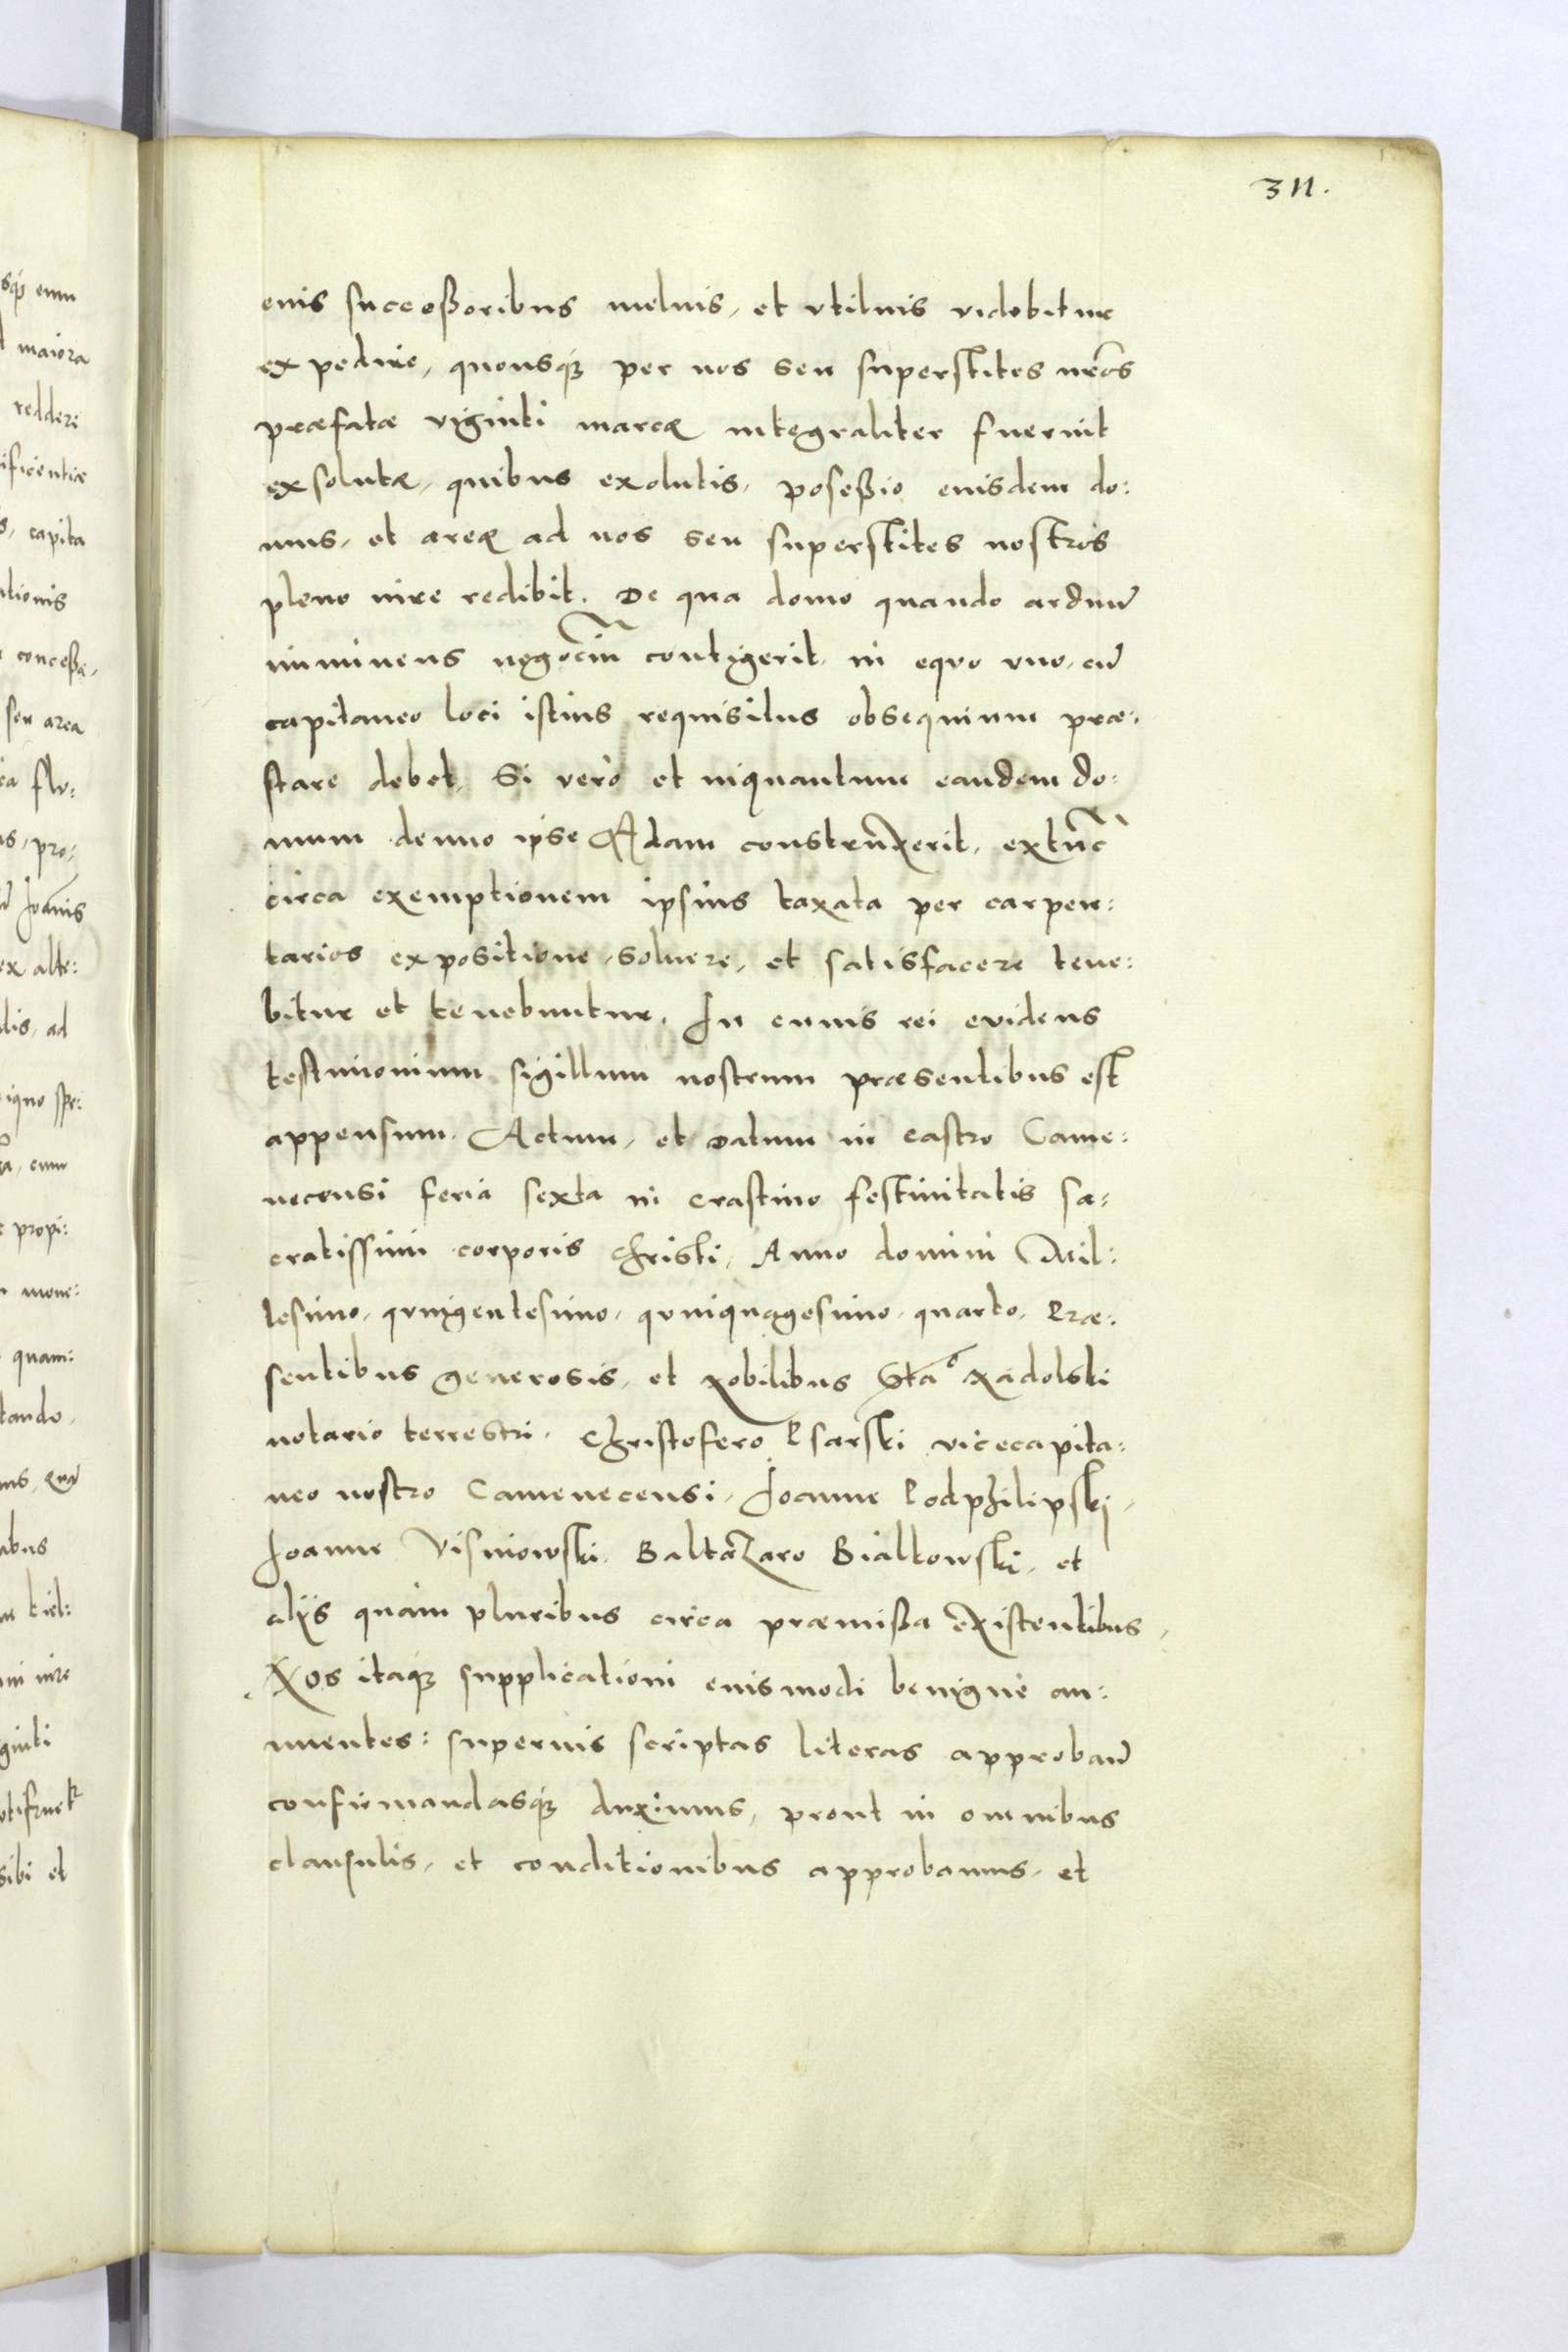 311.
eius succeßoribus melius, et vtilius videbitur
expedire, quousq₃ per nos seu superstites nr̃os
præfatæ viginti marcę integraliter fuerint
exsolutę, quibus exolutis, poseßio eiusdem do:
mus, et areę ad nos seu superstites nostros
pleno iure redibit. De qua domo quando arduũ
imminens negociũ contigerit, in equo vno, cũ
capitaneo loci istius requisitus obsequium præ:
stare debet, Si verò et inquantum eandem do:
mum denuo ipse Adam construxerit, extũc
circa exemptionem ipsius taxata per carpen:
tarios expositione, soluere, et satisfacere tene:
bitur et tenebuntur. In cuius rei euidens
testimonium sigillum nostrum præsentibus est
appensum. Actum, et Datum in castro Came:
necensi feria sexta in crastino festiuitatis sa:
cratissimi corporis Christi, Anno domini Mil:
lesimo, quingentesimo, quinquagesimo, quarto, Præ:
sentibus generosis, et Nobilibus Staᵒ Radolski
notario terrestri, Christofero Psarski vicecapita:
neo nostro Camenecensi, Joanne Podphilipski,
Joanne Visniowski, Baltazaro Bialkowski, et
alijs quàm pluribus circa præmißa existentibus,
Nos itaq₃ supplicationi eiusmodi benignè an:
nuentes: superius scriptas literas approbañ
confirmandasq₃ duximus, prout in omnibus
clausulis, et conditionibus approbamus, et
sq₃ eum
maiora
redderi
ificentiæ
capita
ationis
conceßa,
seu area
flu:
pro:
Joannis
ex alte:
ad
iquo
cum
propi:
mone:
quam:
tando,
abus
iure
ginti
sibi et